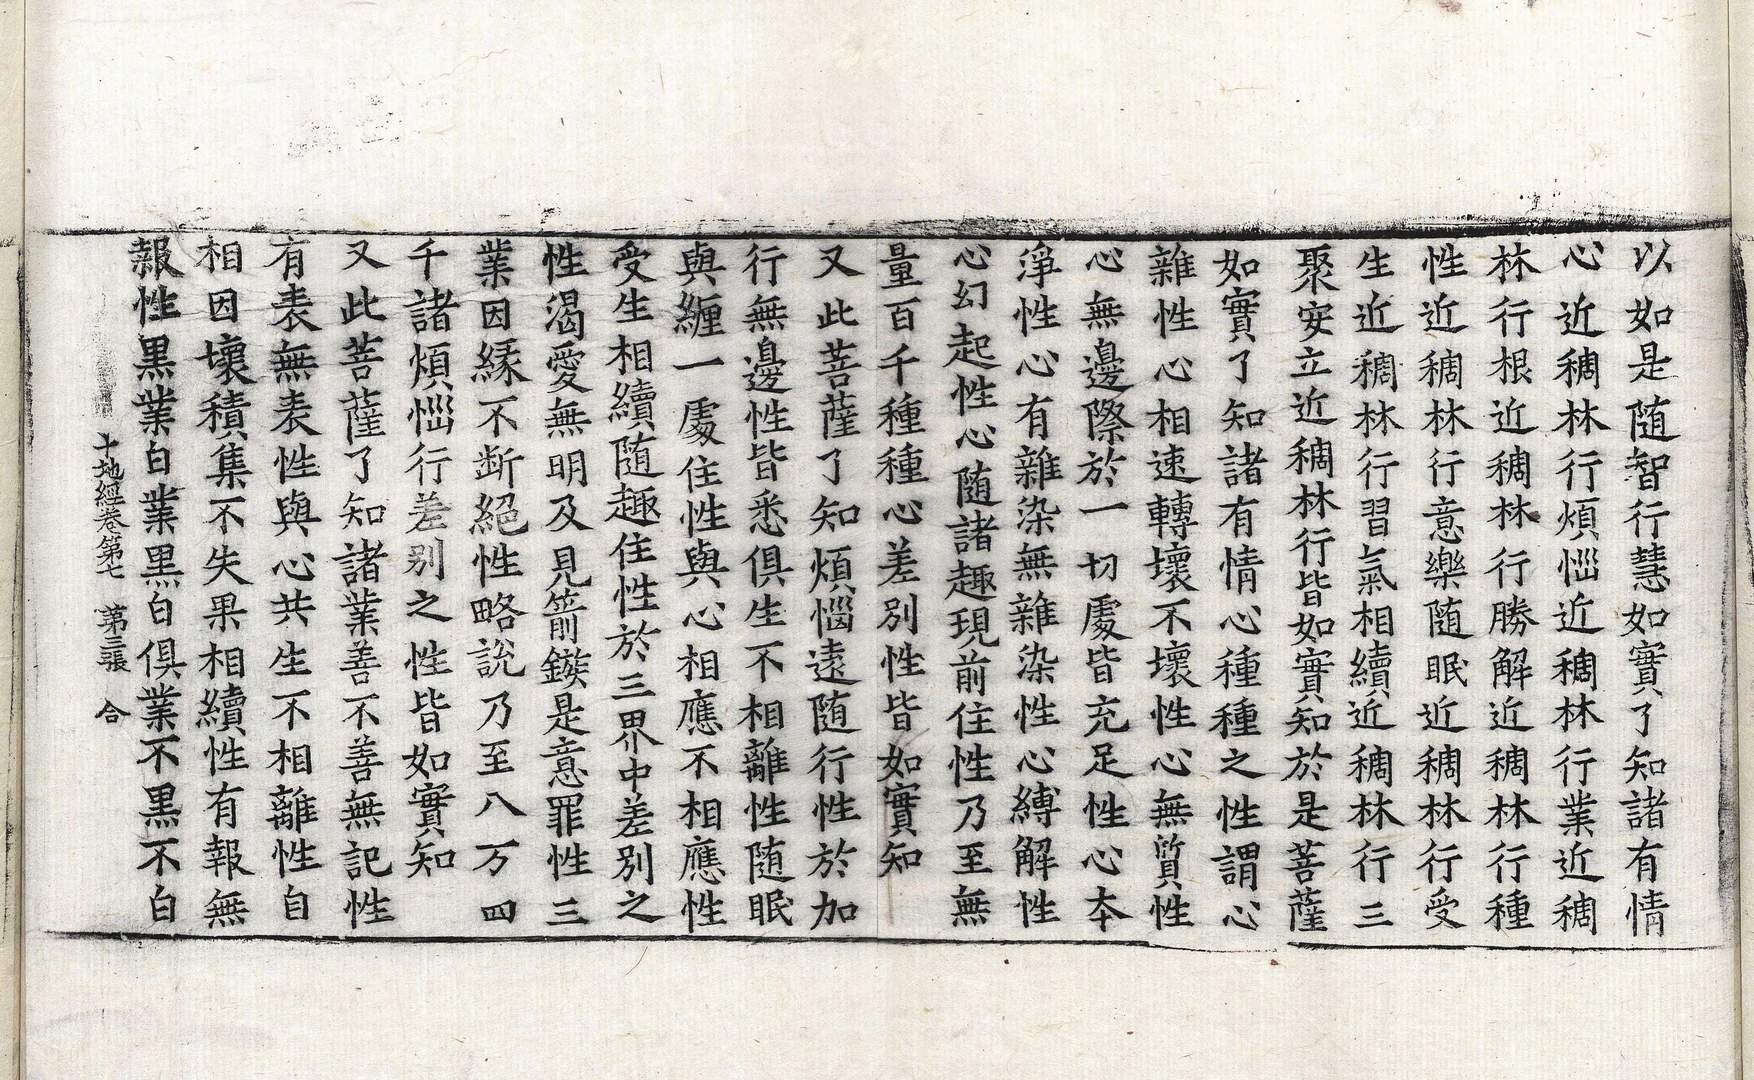 以如是随智行慧如實了知諸有情
心近稠林行煩惱近稠林行業近稠
林行根近稠林行勝解近稠林行種
性近稠林行意樂随眠近稠林行受
生近稠林行習氣相續近稠林行三
聚安立近稠林行皆如實知於是菩薩
如實了知諸有情心種種之性謂心
雜性心相速轉壞不壞性心無質性
心無邊際於一切處皆充足性心本
淨性心有雜染無雜染性心縛解性
心幻起性心随諸趣現前住性乃至無
量百千種種心差別性皆如實知
又此菩薩了知煩惱遠随行性於加
行無邊性皆悉俱生不相離性随眠
與纏一處住性與心相應不相應性
受生相續随趣住性於三界中差別之
性渴愛無明及見箭鏃是意罪性三
業因緣不断絕性略說乃至八万四
千諸煩惱行差别之性皆如實知
又此菩薩了知諸業善不善無記性
有表無表性與心共生不相離性自
相因壞積集不失果相續性有報無
報性黒業白業黒白俱業不黒不白
十地經卷第七 第三張 合